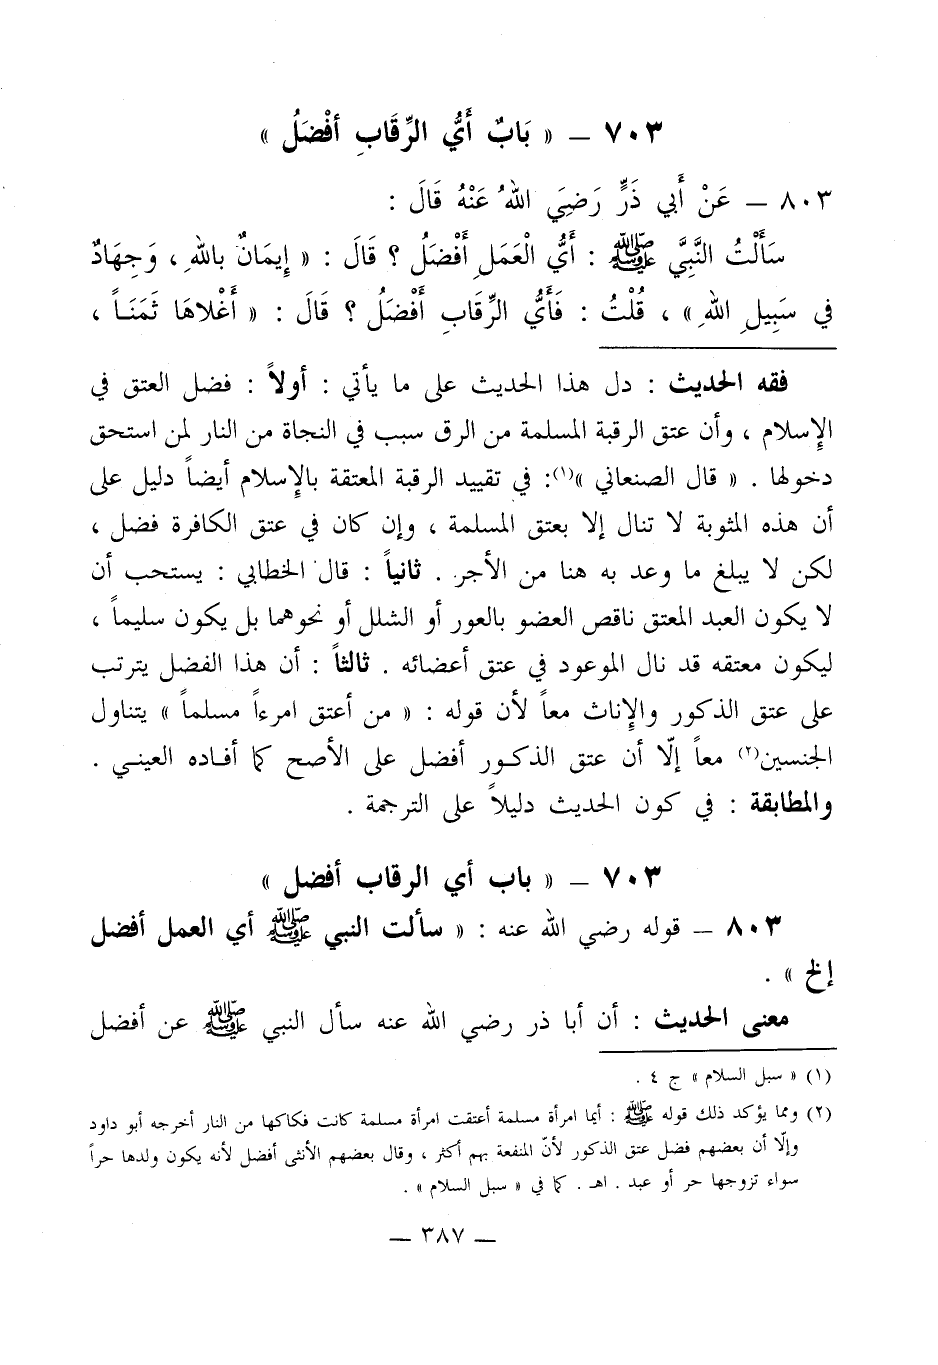 ٧٠٣ – « بَابٌ أَيُّ الرِّقَابِ أفْضَلُ »
٨٠٣ – عَنْ أَبي ذَرٍّ رَضِيَ اللهُ عَنْهُ قَالَ :
سَأَلْتُ النَّبِيَّ ﷺ : أَيُّ الْعَمَلِ أَفْضَلُ ؟ قَالَ : « إِيمَانٌ بِاللهِ ، وَجِهَادٌ
في سَبِيلِ اللهِ » ، قُلْتُ : فَأَيُّ الرِّقَابِ أَفْضَلُ ؟ قَالَ : « أَغْلاهَا ثَمَنَـاً ،
فقه الحديث : دل هذا الحديث على ما يأتي : أولاً : فضل العتق في
الإسلام ، وأن عتق الرقبة المسلمة من الرق سبب في النجاة من النار لمن استحق
دخولها . « قال الصنعاني »(١): في تقييد الرقبة المعتقة بالإسلام أيضاً دليل على
أن هذه المثوبة لا تنال إلا بعتق المسلمة ، وإن كان في عتق الكافرة فضل ،
لكن لا يبلغ ما وعد به هنا من الأجر . ثانياً : قال الخطابي : يستحب أن
لا يكون العبد المعتق ناقص العضو بالعور أو الشلل أو نحوهما بل يكون سليماً ،
ليكون معتقه قد نال الموعود في عتق أعضائه . ثالثاً : أن هذا الفضل يترتب
على عتق الذكور والإناث معاً لأن قوله : « من أعتق امرءاً مسلماً » يتناول
الجنسين(٢) معاً إلّا أن عتق الذكـور أفضل على الأصح كما أفـاده العينـي .
والمطابقة : في كون الحديث دليلاً على الترجمة .
٧٠٣ – « باب أي الرقاب أفضل »
٨٠٣ – قوله رضي الله عنه : « سألت النبي ﷺ أي العمل أفضل
إلخ » .
معنى الحديث : أن أبا ذر رضي الله عنه سأل النبي ﷺ عن أفضل
(١) « سبل السلام » ج ٤ .
(٢) ومما يؤكد ذلك قوله ﷺ : أيما امرأة مسلمة أعتقت امرأة مسلمة كانت فكاكها من النار أخرجه أبو داود
وإلّا أن بعضهم فضل عتق الذكور لأنّ المنفعة بهم أكثر ، وقال بعضهم الأنثى أفضل لأنه يكون ولدها حراً
سواء تزوجها حر أو عبد . اهـ . كما في « سبل السلام » .
– ٣٨٧ –